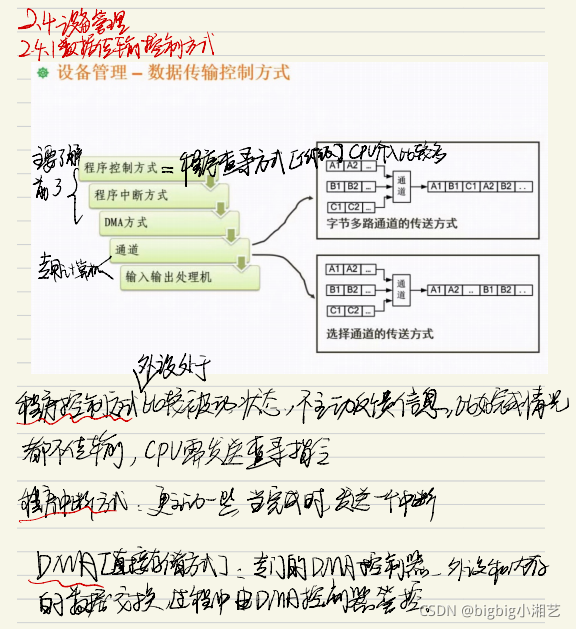 2.4 设备管理
2.4.1 数据传输控制方式
设备管理 – 数据传输控制方式
主要了解
前3
程序控制方式 = 程序查寻方式 CPU介入比较多
程序中断方式
DMA方式
通道
专用计算机
输入输出处理机
A1 A2 ...
B1 B2 ...
C1 C2 ...
通道
A1 B1 C1 A2 B2 ..
字节多路通道的传送方式
A1 A2 ...
B1 B2 ...
C1 C2 ...
通道
A1 A2 .. B1 B2 ..
选择通道的传送方式
外设处于
程序控制方式 比较被动状态，不主动反馈信息，比如完成情况
都不传输，CPU需发送查寻指令
程序中断方式：更主动一些 当完成时，发送一个中断
DMA[直接存储方式]：专门的DMA控制器 外设和内存
的数据交换过程中由DMA控制器管控。
CSDN @bigbig小湘艺